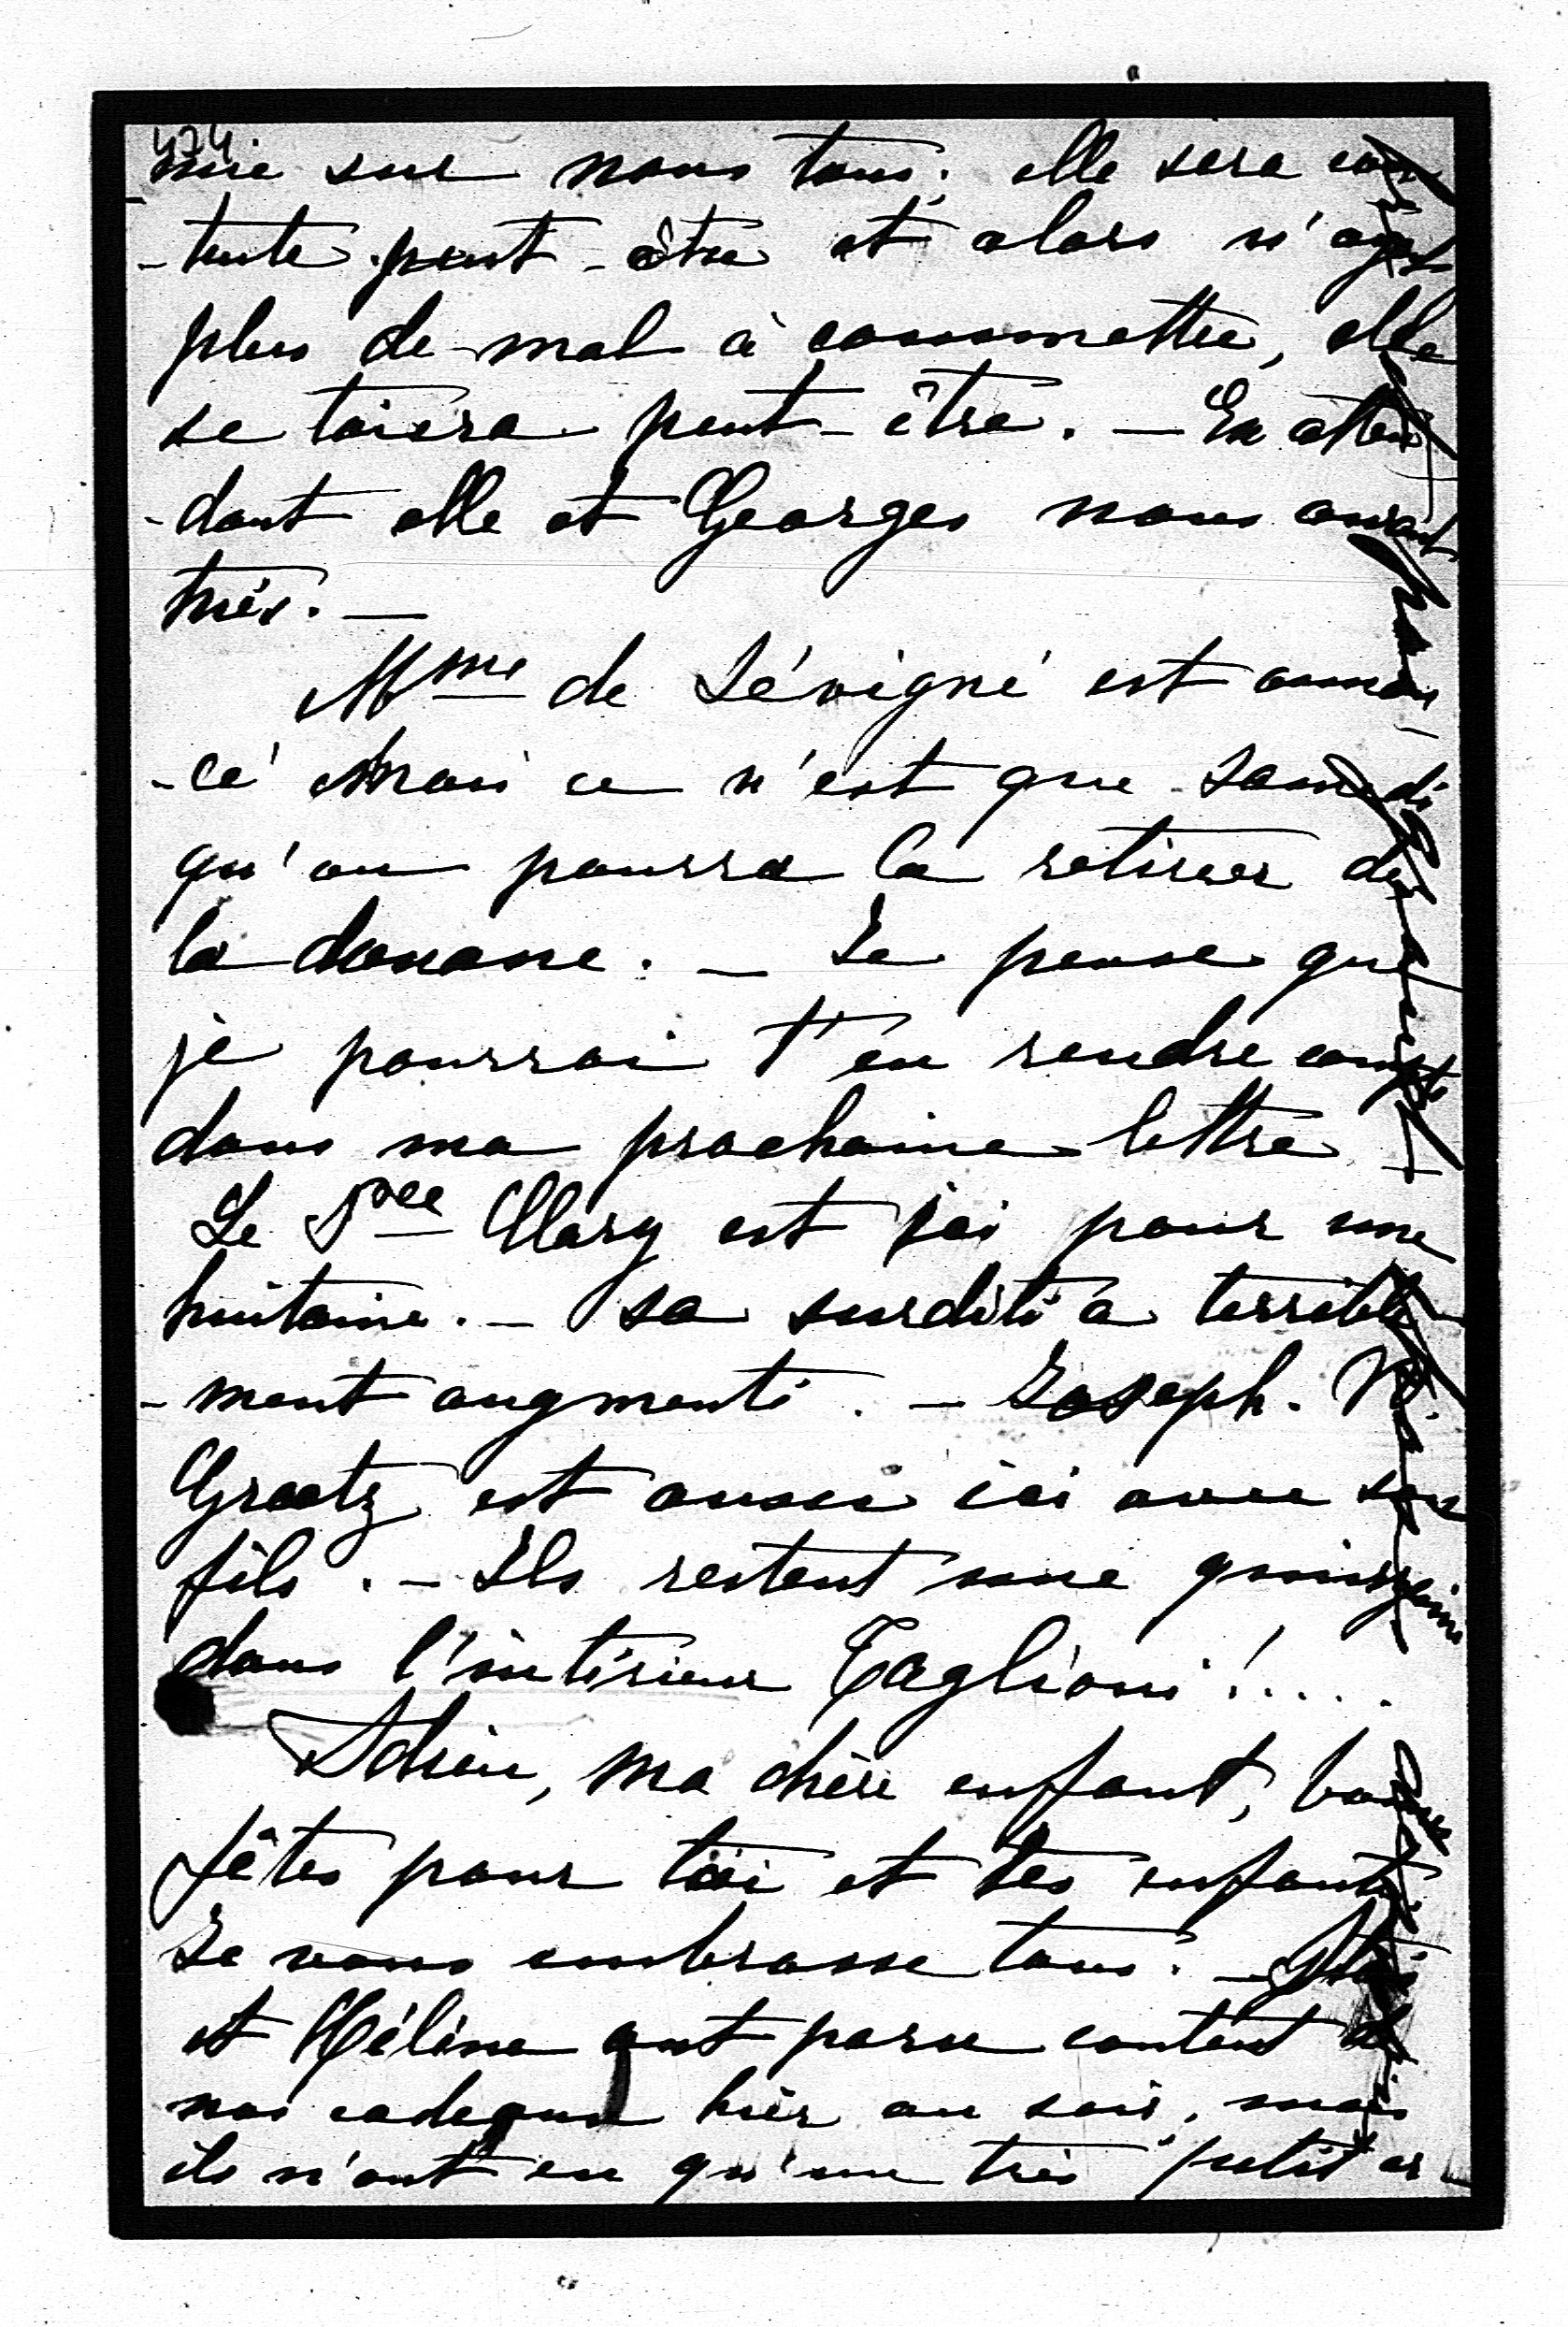 474
nie sur nous tous; elle sera con
-tente peut-être et alors n'ayant
plus de mal à commettre, elle
se taiera peut-être. — En atten
-dant elle et Georges nous auront
tués. —
Mme de Sévigné est annon
-cé mais ce n'est que samedi
qu'on pourra la retirer de
la douane. — Je pense que
je pourrai t'en rendre compte
dans ma prochaine lettre
Le Pce Clary est ici pour une
huitaine. — sa surdité a terrible
-ment augmenté. — Joseph. W.
Graetz est aussi ici avec son
fils. — Ils restent une quinzaine
dans l'intérieur Taglioni!....
Adieu, ma chère enfant, bonnes
fêtes pour toi et tes enfants.
Je vous embrasse tous. —
et Hélène ont paru content de
nos cadeaux hier au soir, mais
ils n'ont eu qu'un très petit ar